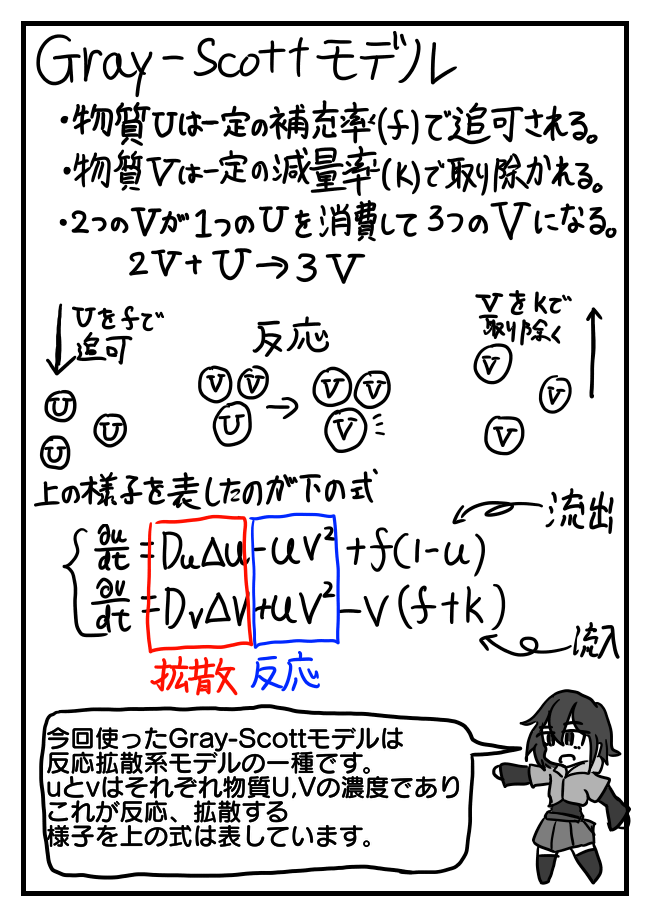 Gray-Scottモデル
・物質Uは一定の補充率(f)で追可される。
・物質Vは一定の減量率(k)で取り除かれる。
・2つのVが1つのUを消費して3つのVになる。
2V+U→3V
Uをfで
追可
反応
Vをkで
取り除く
U
U
U
V V
U
→
V V
V
V
V
V
上の様子を表したのが下の式
流出
∂u/dt = DuΔu-uv²+f(1-u)
∂v/dt = DvΔv+uv²-v(f+k)
流入
拡散 反応
今回使ったGray-Scottモデルは
反応拡散系モデルの一種です。
uとvはそれぞれ物質U,Vの濃度であり
これが反応、拡散する
様子を上の式は表しています。